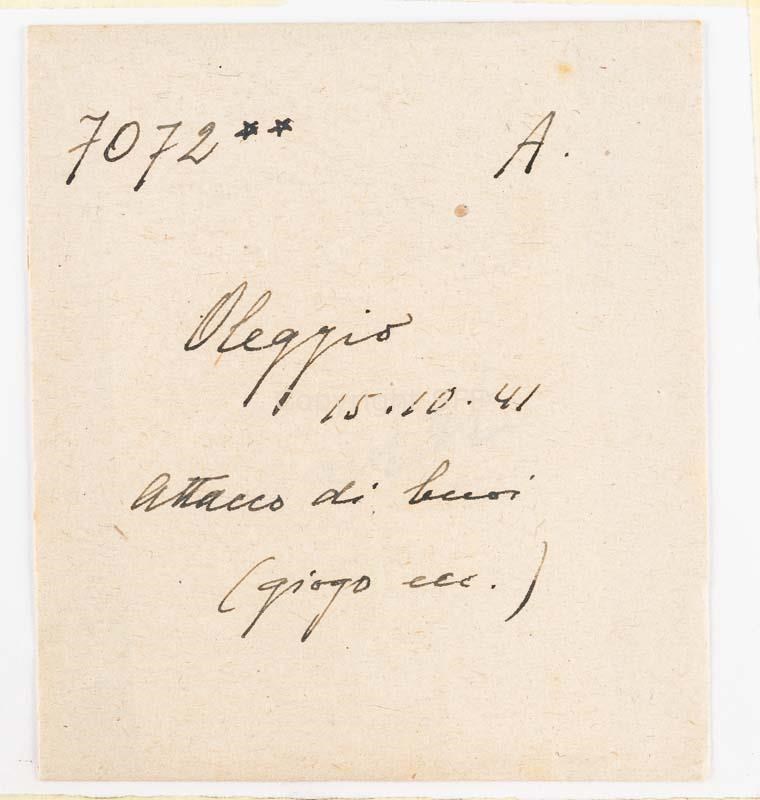 7072** A.
Oleggio
15.10.41
Attacco di buoi
(giogo ecc.)